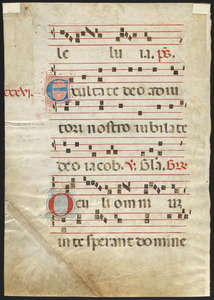 le lu ia. ps̄.
xxxvi.
Exultate deo adiu
tori nostro iubilate
deo iacob. V. Gla. Gre.
Oculi omni ur
in te sperant domine